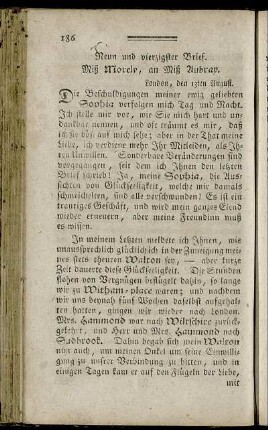 186
Neun und vierzigster Brief.
Miß Morely, an Miß Aubray.
London, den 13ten August.
Die Beschuldigungen meiner ewig geliebten
Sophia verfolgen mich Tag und Nacht.
Ich stelle mir vor, wie Sie mich hart und un-
dankbar nennen, und oft träumt es mir, daß
ich sie bös auf mich sehe; aber in der That meine
Liebe, ich verdiene mehr Ihr Mitleiden, als Ih-
ren Unwillen. Sonderbare Veränderungen sind
vorgegangen, seit dem ich Ihnen den letzten
Brief schrieb! Ja, meine Sophia, die Aus-
sichten von Glückseeligkeit, welche mir damals
schmeichelten, sind alle verschwunden! Es ist ein
trauriges Geschäft, und wird mein ganzes Elend
wieder erneuern, aber meine Freundinn muß
es wissen.
In meinem Letzten meldete ich Ihnen, wie
unaussprechlich glücklich ich in der Zuneigung mei-
nes stets theuren Walton sey, — aber kurze
Zeit dauerte diese Glückseeligkeit. Die Stunden
flohen von Vergnügen beflügelt dahin, so lange
wir zu Witham-place waren; und nachdem
wir uns beynah fünf Wochen daselbst aufgehal-
ten hatten, gingen wir wieder nach London.
Mrs. Hammond war nach Wiltschire zurück-
gekehrt, und Herr und Mrs. Hammond nach
Sadbrook. Dahin begab sich mein Walton
nun auch, um meinen Onkel um seine Einwilli-
gung zu unsrer Verbindung zu bitten, und in
einigen Tagen kam er auf den Flügeln der Liebe,
mit